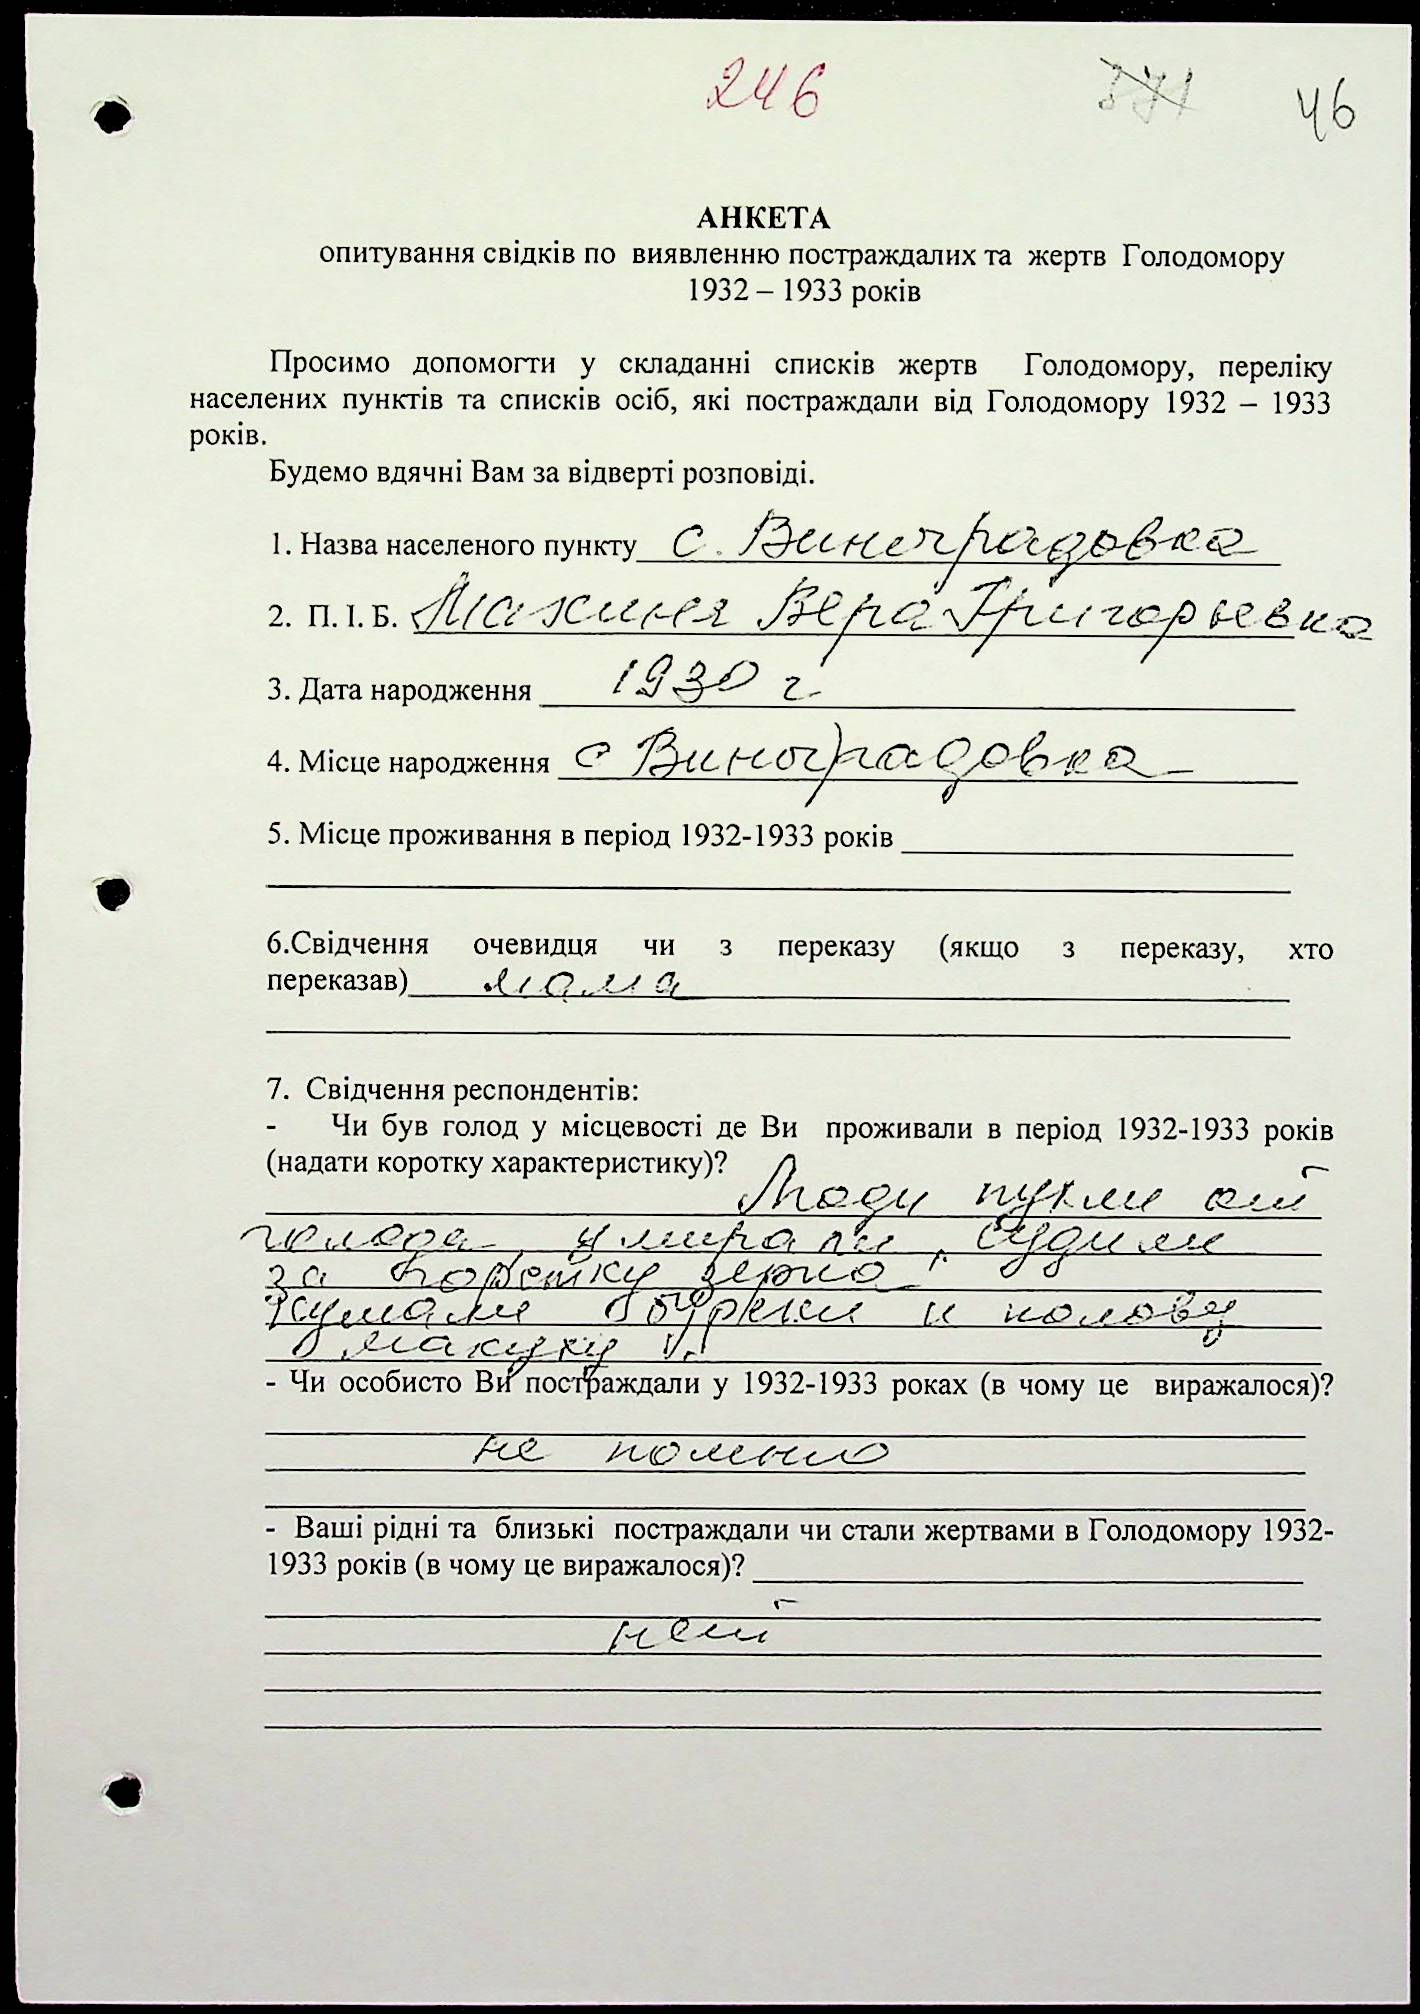 246 371 46
АНКЕТА
опитування свідків по виявленню постраждалих та жертв Голодомору
1932 – 1933 років
Просимо допомогти у складанні списків жертв Голодомору, переліку
населених пунктів та списків осіб, які постраждали від Голодомору 1932 – 1933
років.
Будемо вдячні Вам за відверті розповіді.
1. Назва населеного пункту с. Виноградовка
2. П. І. Б. Вера Григорьевна
3. Дата народження 1930 г.
4. Місце народження с Виноградовка
5. Місце проживання в період 1932-1933 років
6.Свідчення очевидця чи з переказу (якщо з переказу, хто
переказав) мама
7. Свідчення респондентів:
- Чи був голод у місцевості де Ви проживали в період 1932-1933 років
(надати коротку характеристику)?
Люди пухли от
голода, умирали, судили
за зерна,
кушали буряки и полову
макуху
- Чи особисто Ви постраждали у 1932-1933 роках (в чому це виражалося)?
не помню
- Ваші рідні та близькі постраждали чи стали жертвами в Голодомору 1932-
1933 років (в чому це виражалося)?
нет